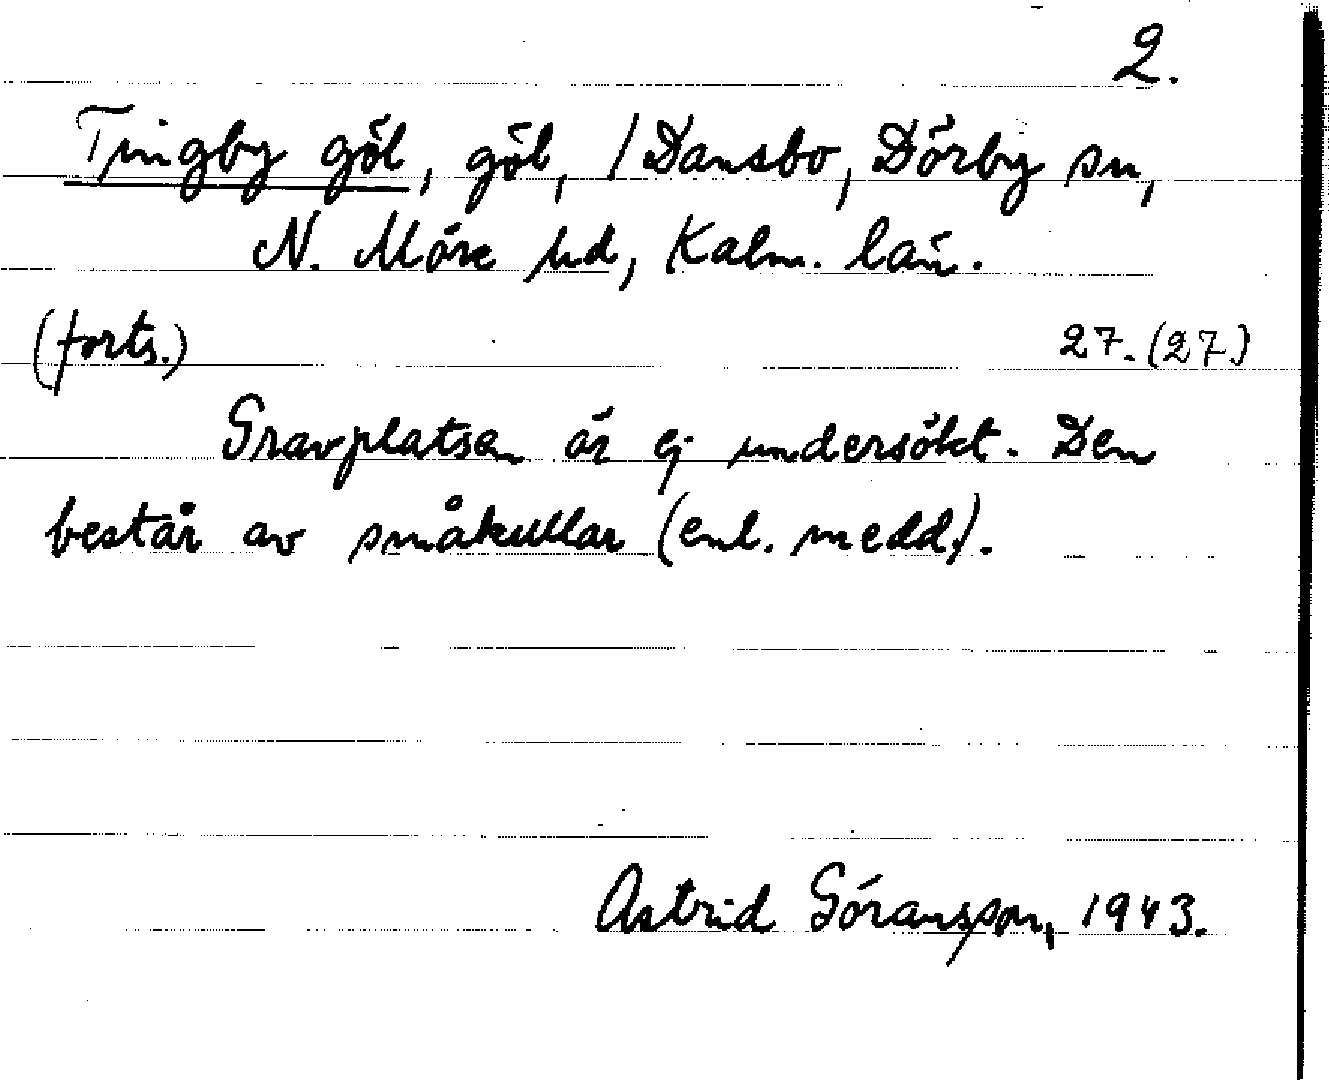 2.
Tingby göl, göl, / Dansbo, Dörby sn,
N. Möre hd, Kalm. län.
(forts.) 27. (27.)
Gravplatsen är ej undersökt. Den
består av småkullar (enl. medd.).
Astrid Göransson, 1943.